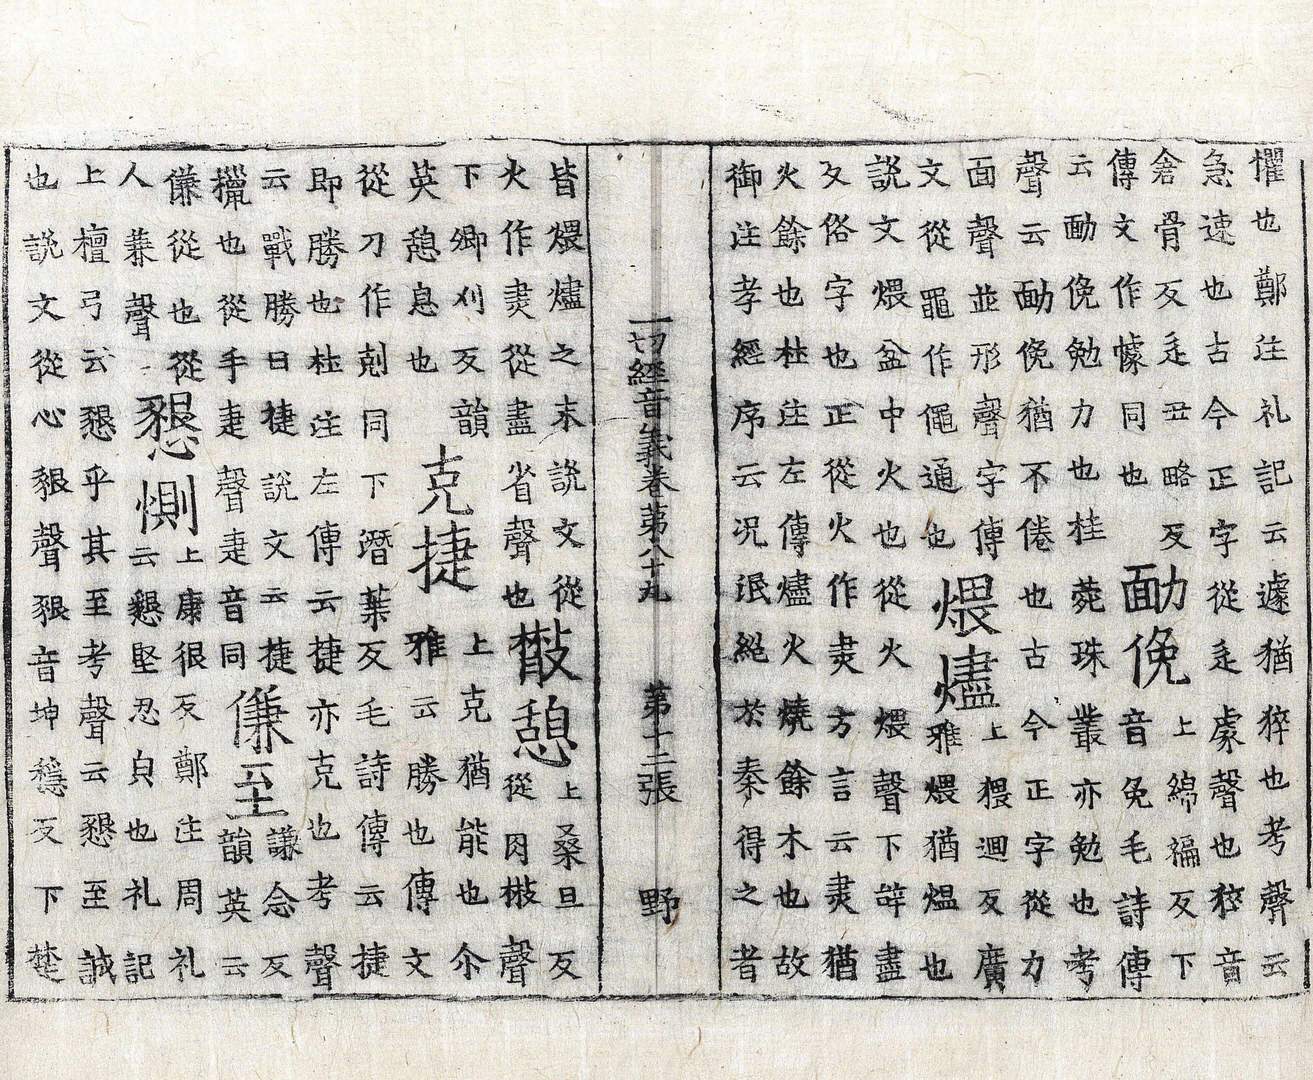 懼也鄭注礼記云遽猶猝也考聲云
急速也古今正字從辵豦聲也猝音
倉骨反辵丑略反
傳文作懅同也
勔俛
上綿褊反下
音免毛詩傳
云勔俛勉力也桂菀珠叢亦勉也考
聲云勔俛猶不倦也古今正字從力
面聲並形聲字傳
文從黽作僶通也
煨燼
上猥迴反廣
雅煨猶煴也
説文煨盆中火也從火煨聲下辝盡
反俗字也正從火作㶳方言云㶳猶
火餘也杜注左傳燼火燒餘木也故
御注孝經序云况泯絕於秦得之者
一切經音義卷第八十九 第十三張 野
皆煨燼之末説文從
火作㶳從盡省聲也
㯙憩
上桑旦反
從肉㯙聲
下卿刈反韻
英憩息也
克捷
上克猶能也尒
雅云勝也傳文
從刀作剋同下潛葉反毛詩傳云捷
即勝也杜注左傳云捷亦克也考聲
云戰勝曰捷説文云捷
獵也從手疌聲疌音同
傔至
謙念反
韻英云
傔從也從
人蒹聲
懇惻
上康很反鄭注周礼
云懇堅忍貞也礼記
上檀弓云懇乎其至考聲云懇至誠
也説文從心豤聲豤音坤穩反下楚